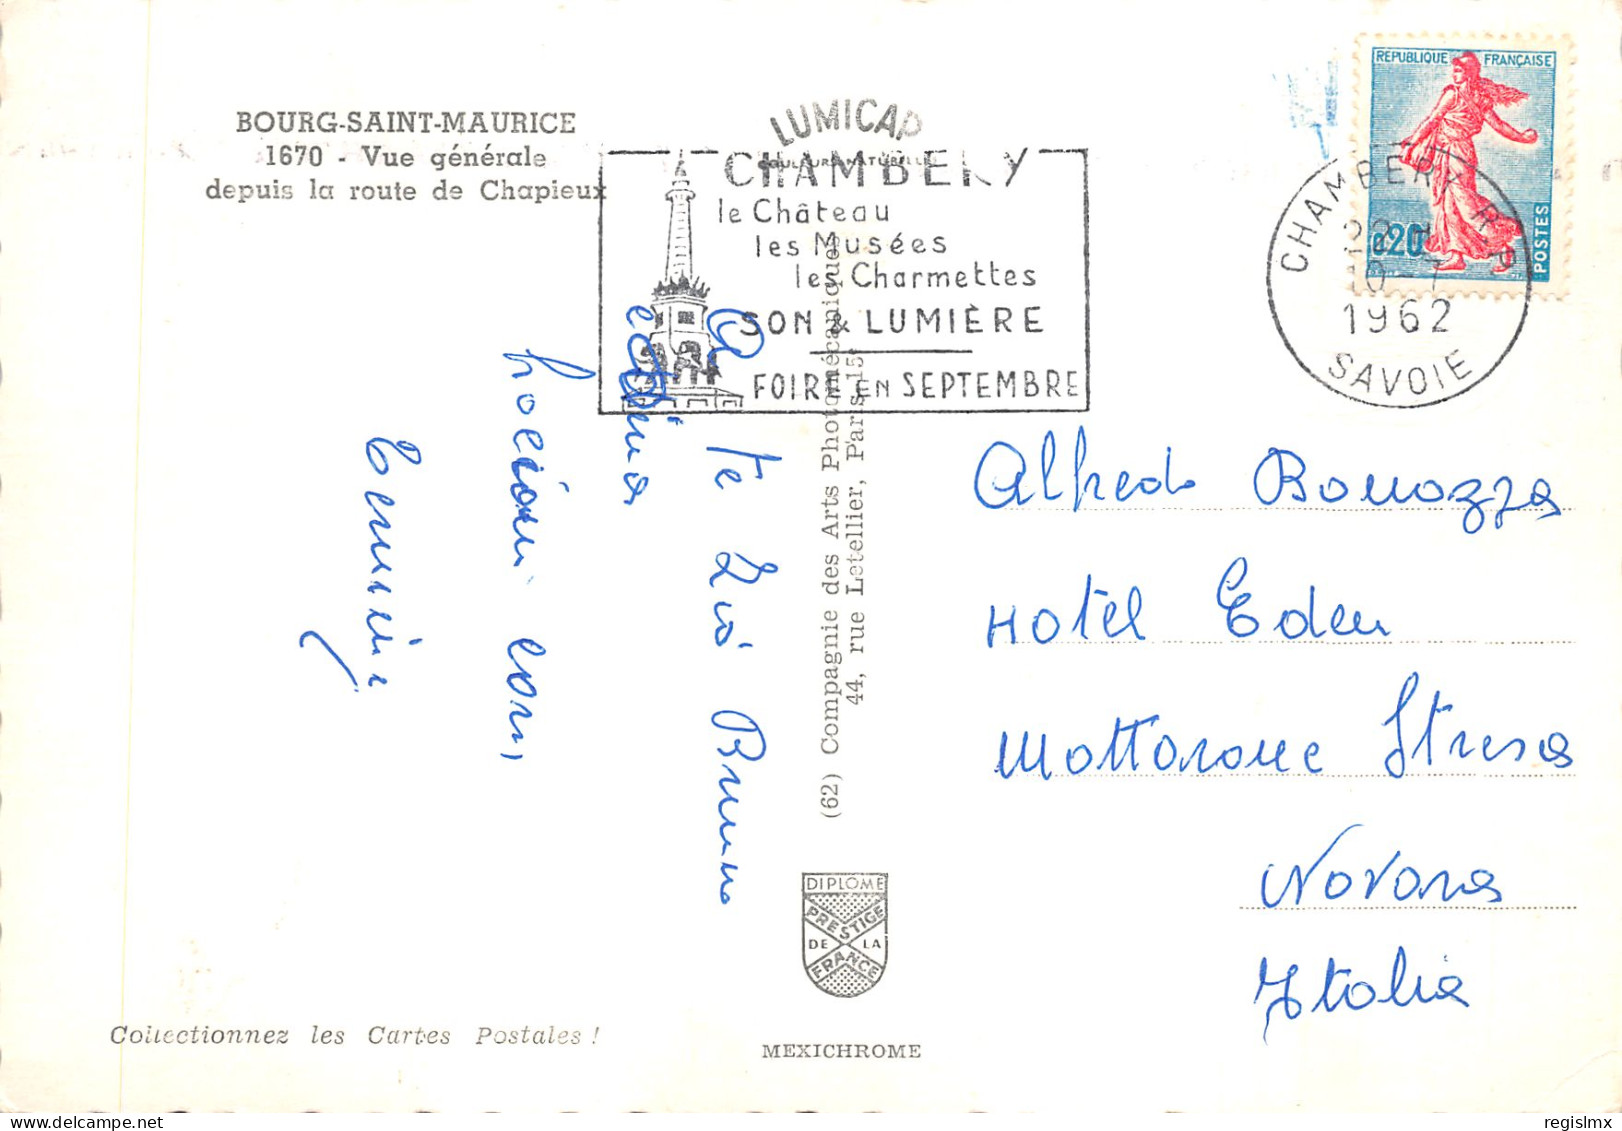 BOURG-SAINT-MAURICE
1670 - Vue générale
depuis la route de Chapieux
LUMICAP
COULEURS NATURELLES
CHAMBERY
le Château
les Musées
les Charmettes
SON & LUMIÈRE
FOIRE EN SEPTEMBRE
REPUBLIQUE FRANÇAISE
0,20
POSTES
CHAMBERY R.P.
22 H
10-7
1962
SAVOIE
te Zio Bruno
(62) Compagnie des Arts Photomécaniques
44, rue Letellier, Paris-15e
Alfredo Bonozza
Hotel Eden
Mottarone Stresa
Novara
Italia
DIPLOME
PRESTIGE
DE LA
FRANCE
Collectionnez les Cartes Postales !
MEXICHROME
regislmx